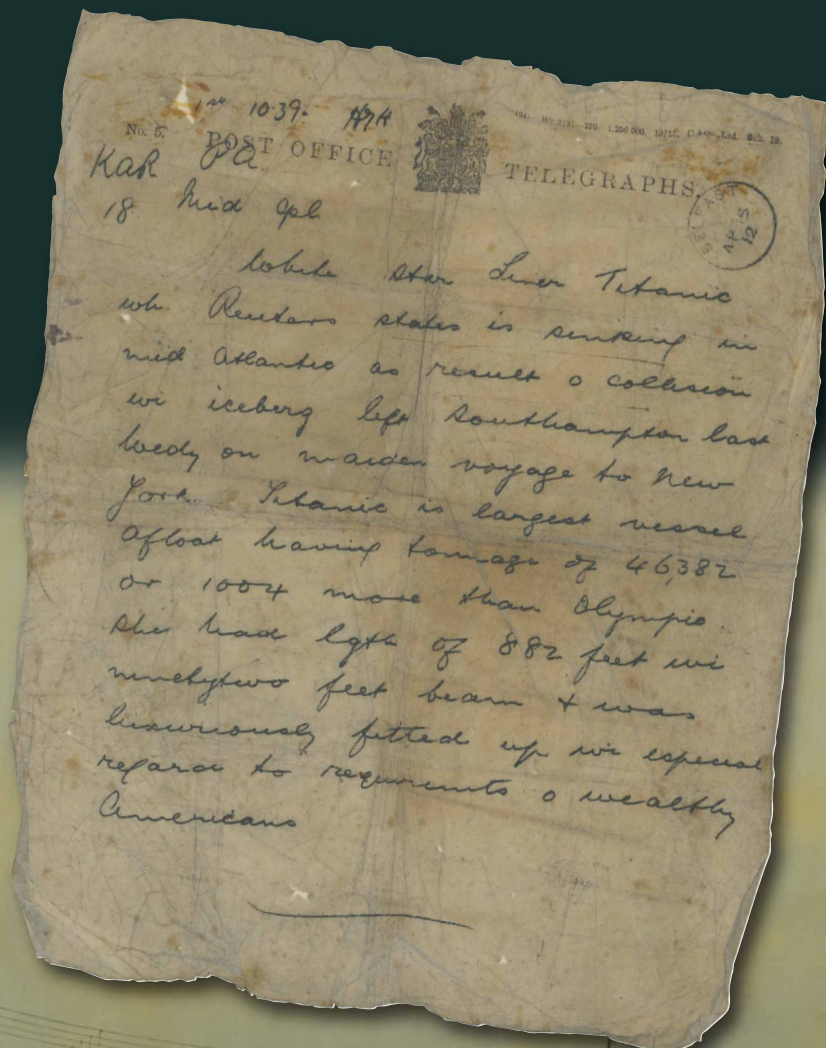 1st 10.39.
No. 5.
POST OFFICE TELEGRAPHS.
KaR PA
18 Mid
BELFAST
AP 15
12
White Star Liner Titanic
wh Reuters states is sinking in
mid Atlantic as result o collision
wi iceberg left Southampton last
Wedy on maiden voyage to New
York. Titanic is largest vessel
afloat having tonnage of 46,382
or 1004 more than Olympic.
She had lgth of 882 feet wi
ninetytwo feet beam + was
luxuriously fitted up wi especial
regard to requirmts o wealthy
Americans